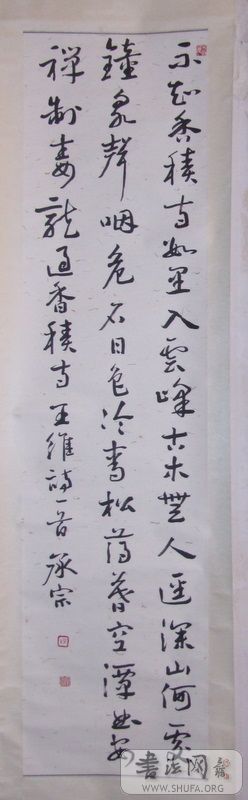 不知香積寺數里入雲峰古木無人逕深山何處
鐘泉聲咽危石日色冷青松薄暮空潭曲安
禪制毒龍過香積寺王維詩一首承宗
書法网
WWW.SHUFA.ORG